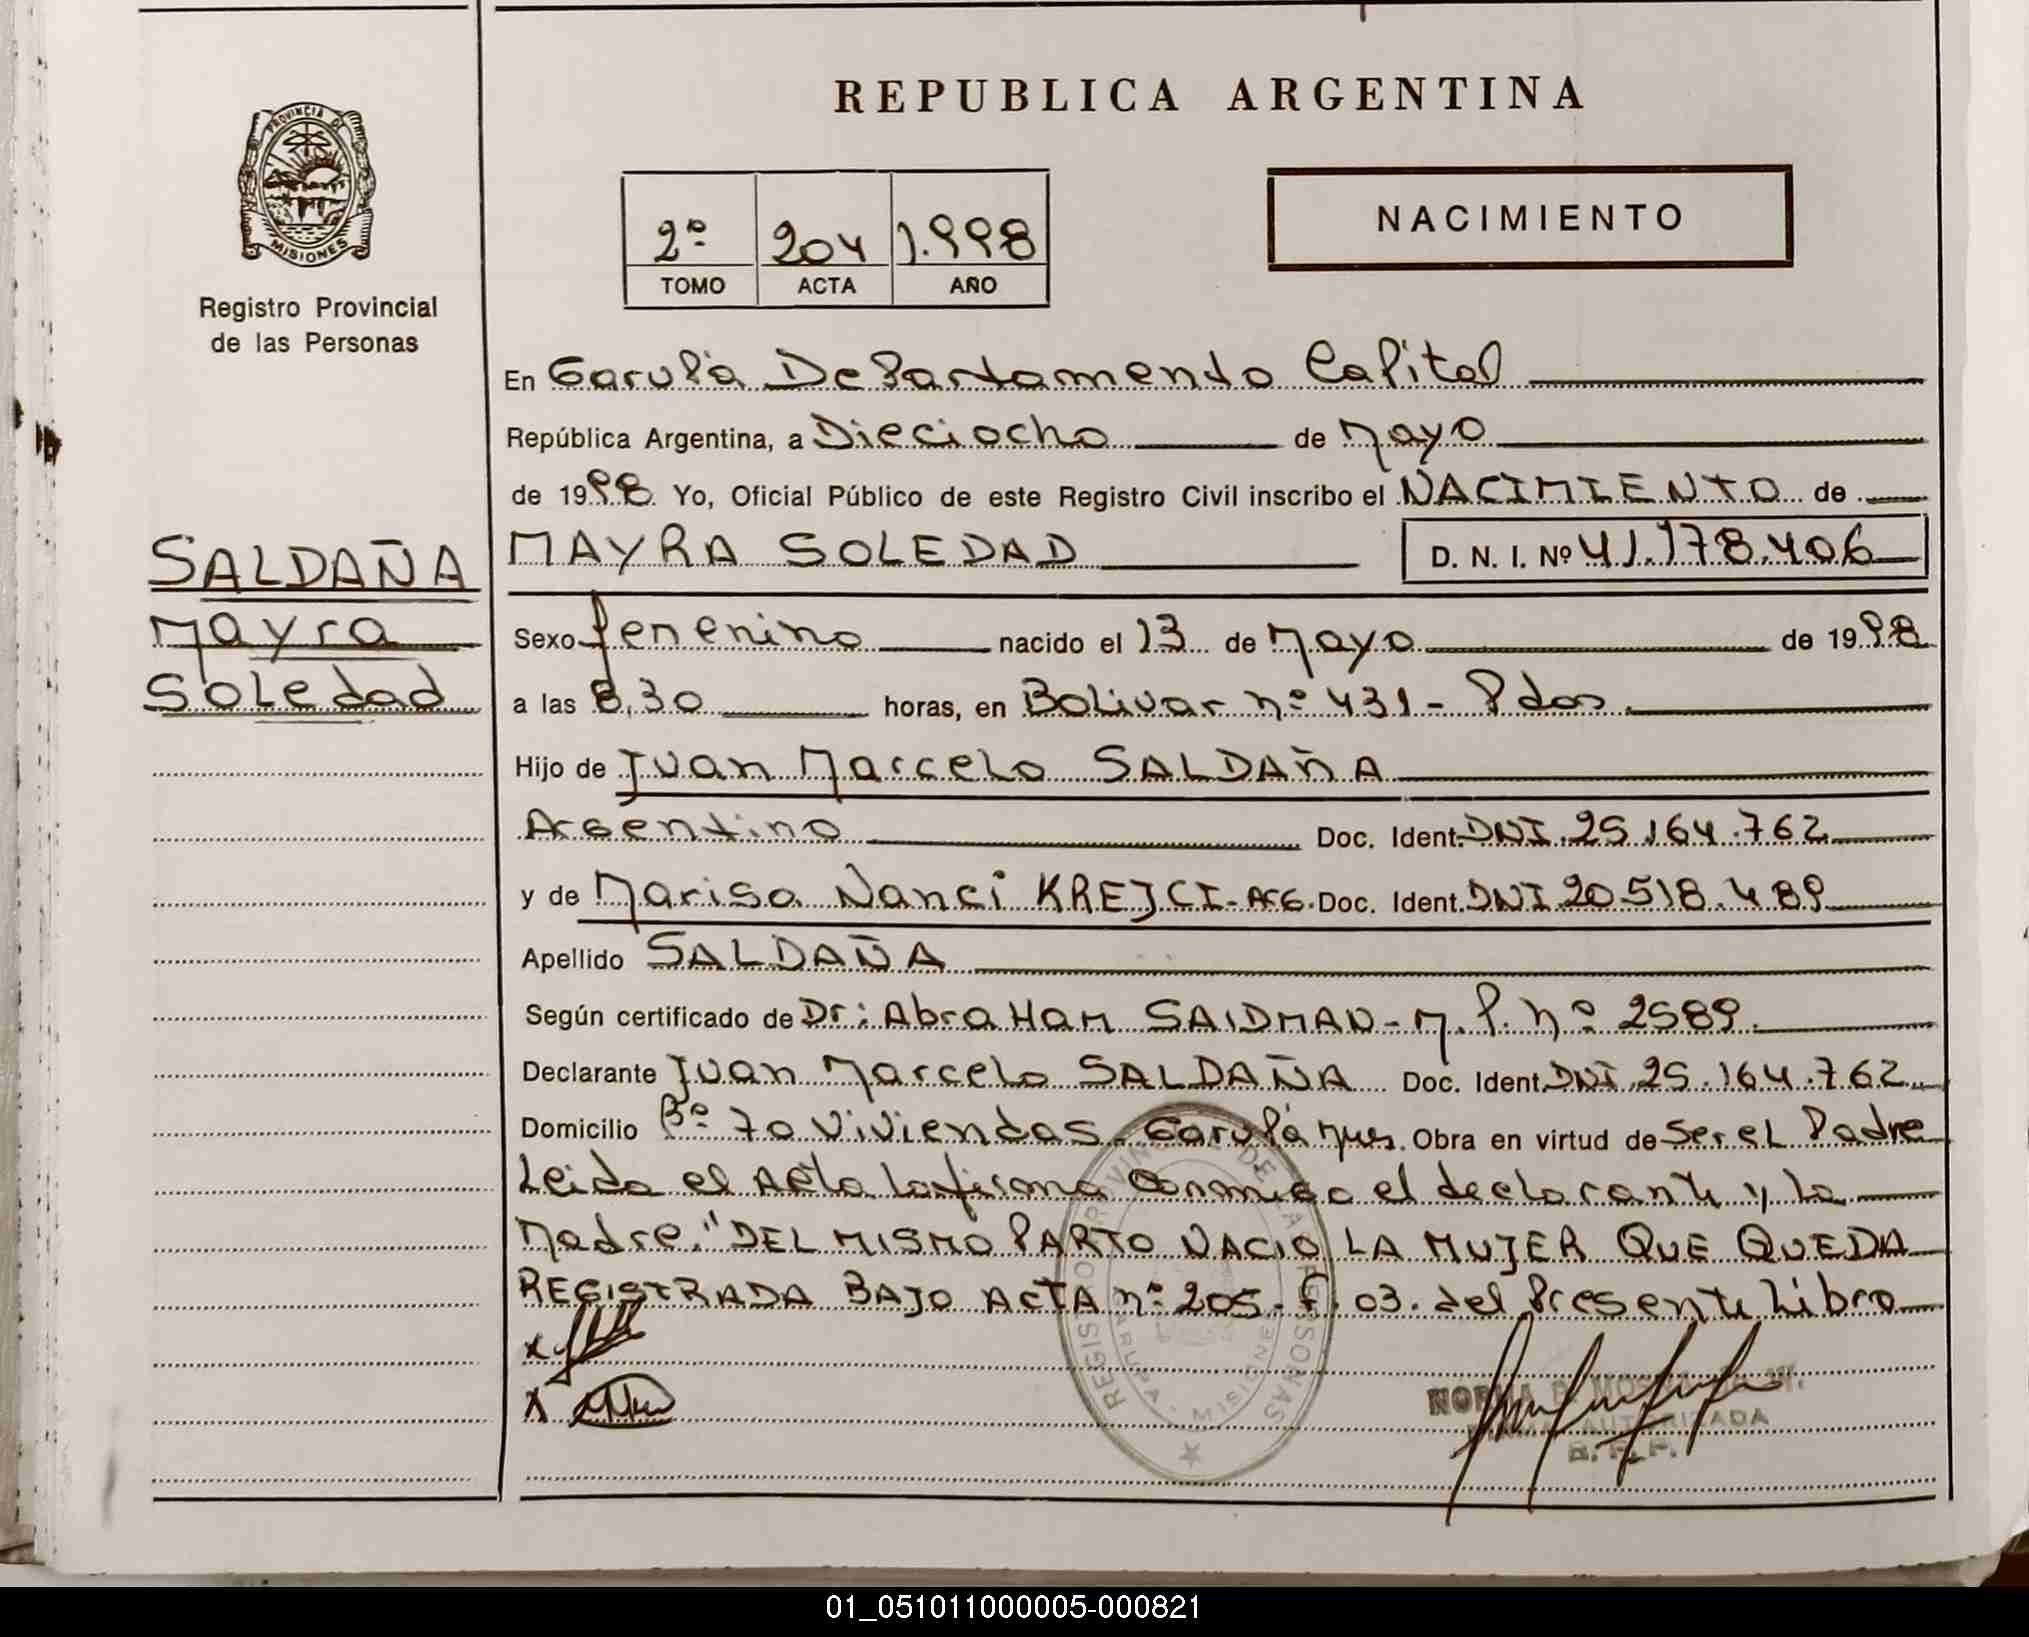 REPUBLICA ARGENTINA
PROVINCIA DE
MISIONES
Registro Provincial
de las Personas
NACIMIENTO
2º 204 1.998
TOMO ACTA AÑO
En Garupá Departamento Capital
República Argentina, a Dieciocho de Mayo
de 1998. Yo, Oficial Público de este Registro Civil inscribo el NACIMIENTO de
SALDAÑA
Mayra
Soledad
MAYRA SOLEDAD D. N. I. Nº 41.178.406
Sexo femenino nacido el 13 de Mayo de 1998
a las 8,30 horas, en Bolivar nº 431 - Pdas.
Hijo de Juan Marcelo SALDAÑA
Argentino Doc. Ident. DNI 25.164.762
y de Marisa Nanci KREJCI - Arg. Doc. Ident. DNI 20.518.489
Apellido SALDAÑA
Según certificado de Dr: Abraham SAIDMAN - M.P. nº 2589.
Declarante Juan Marcelo SALDAÑA Doc. Ident. DNI 25.164.762
Domicilio Bº 70 Viviendas - Garupá Mnes. Obra en virtud de Ser el Padre
Leida el Acta la firma Conmigo el declarante y la
Madre. "DEL MISMO PARTO NACIO LA MUJER QUE QUEDA
REGISTRADA BAJO ACTA nº 205 - F. 03. del Presente Libro
REGISTRO PROVINCIAL DE LAS PERSONAS
GARUPA - MISIONES
x
x
NORMA
FIRMA AUTORIZADA
01_051011000005-000821